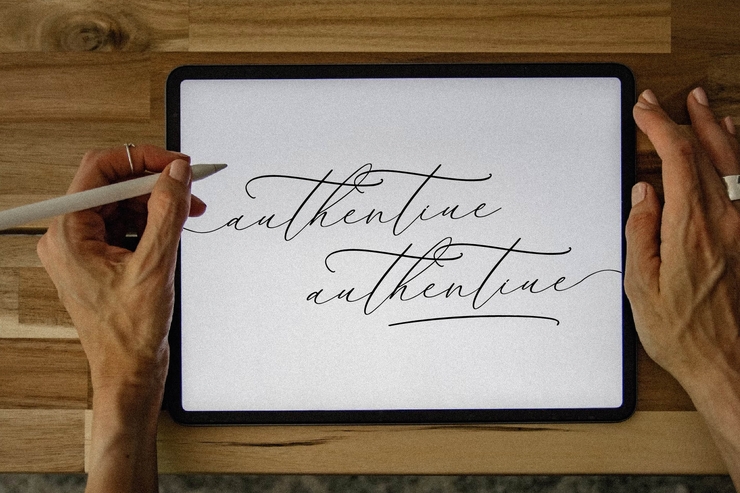 authentive
authentive